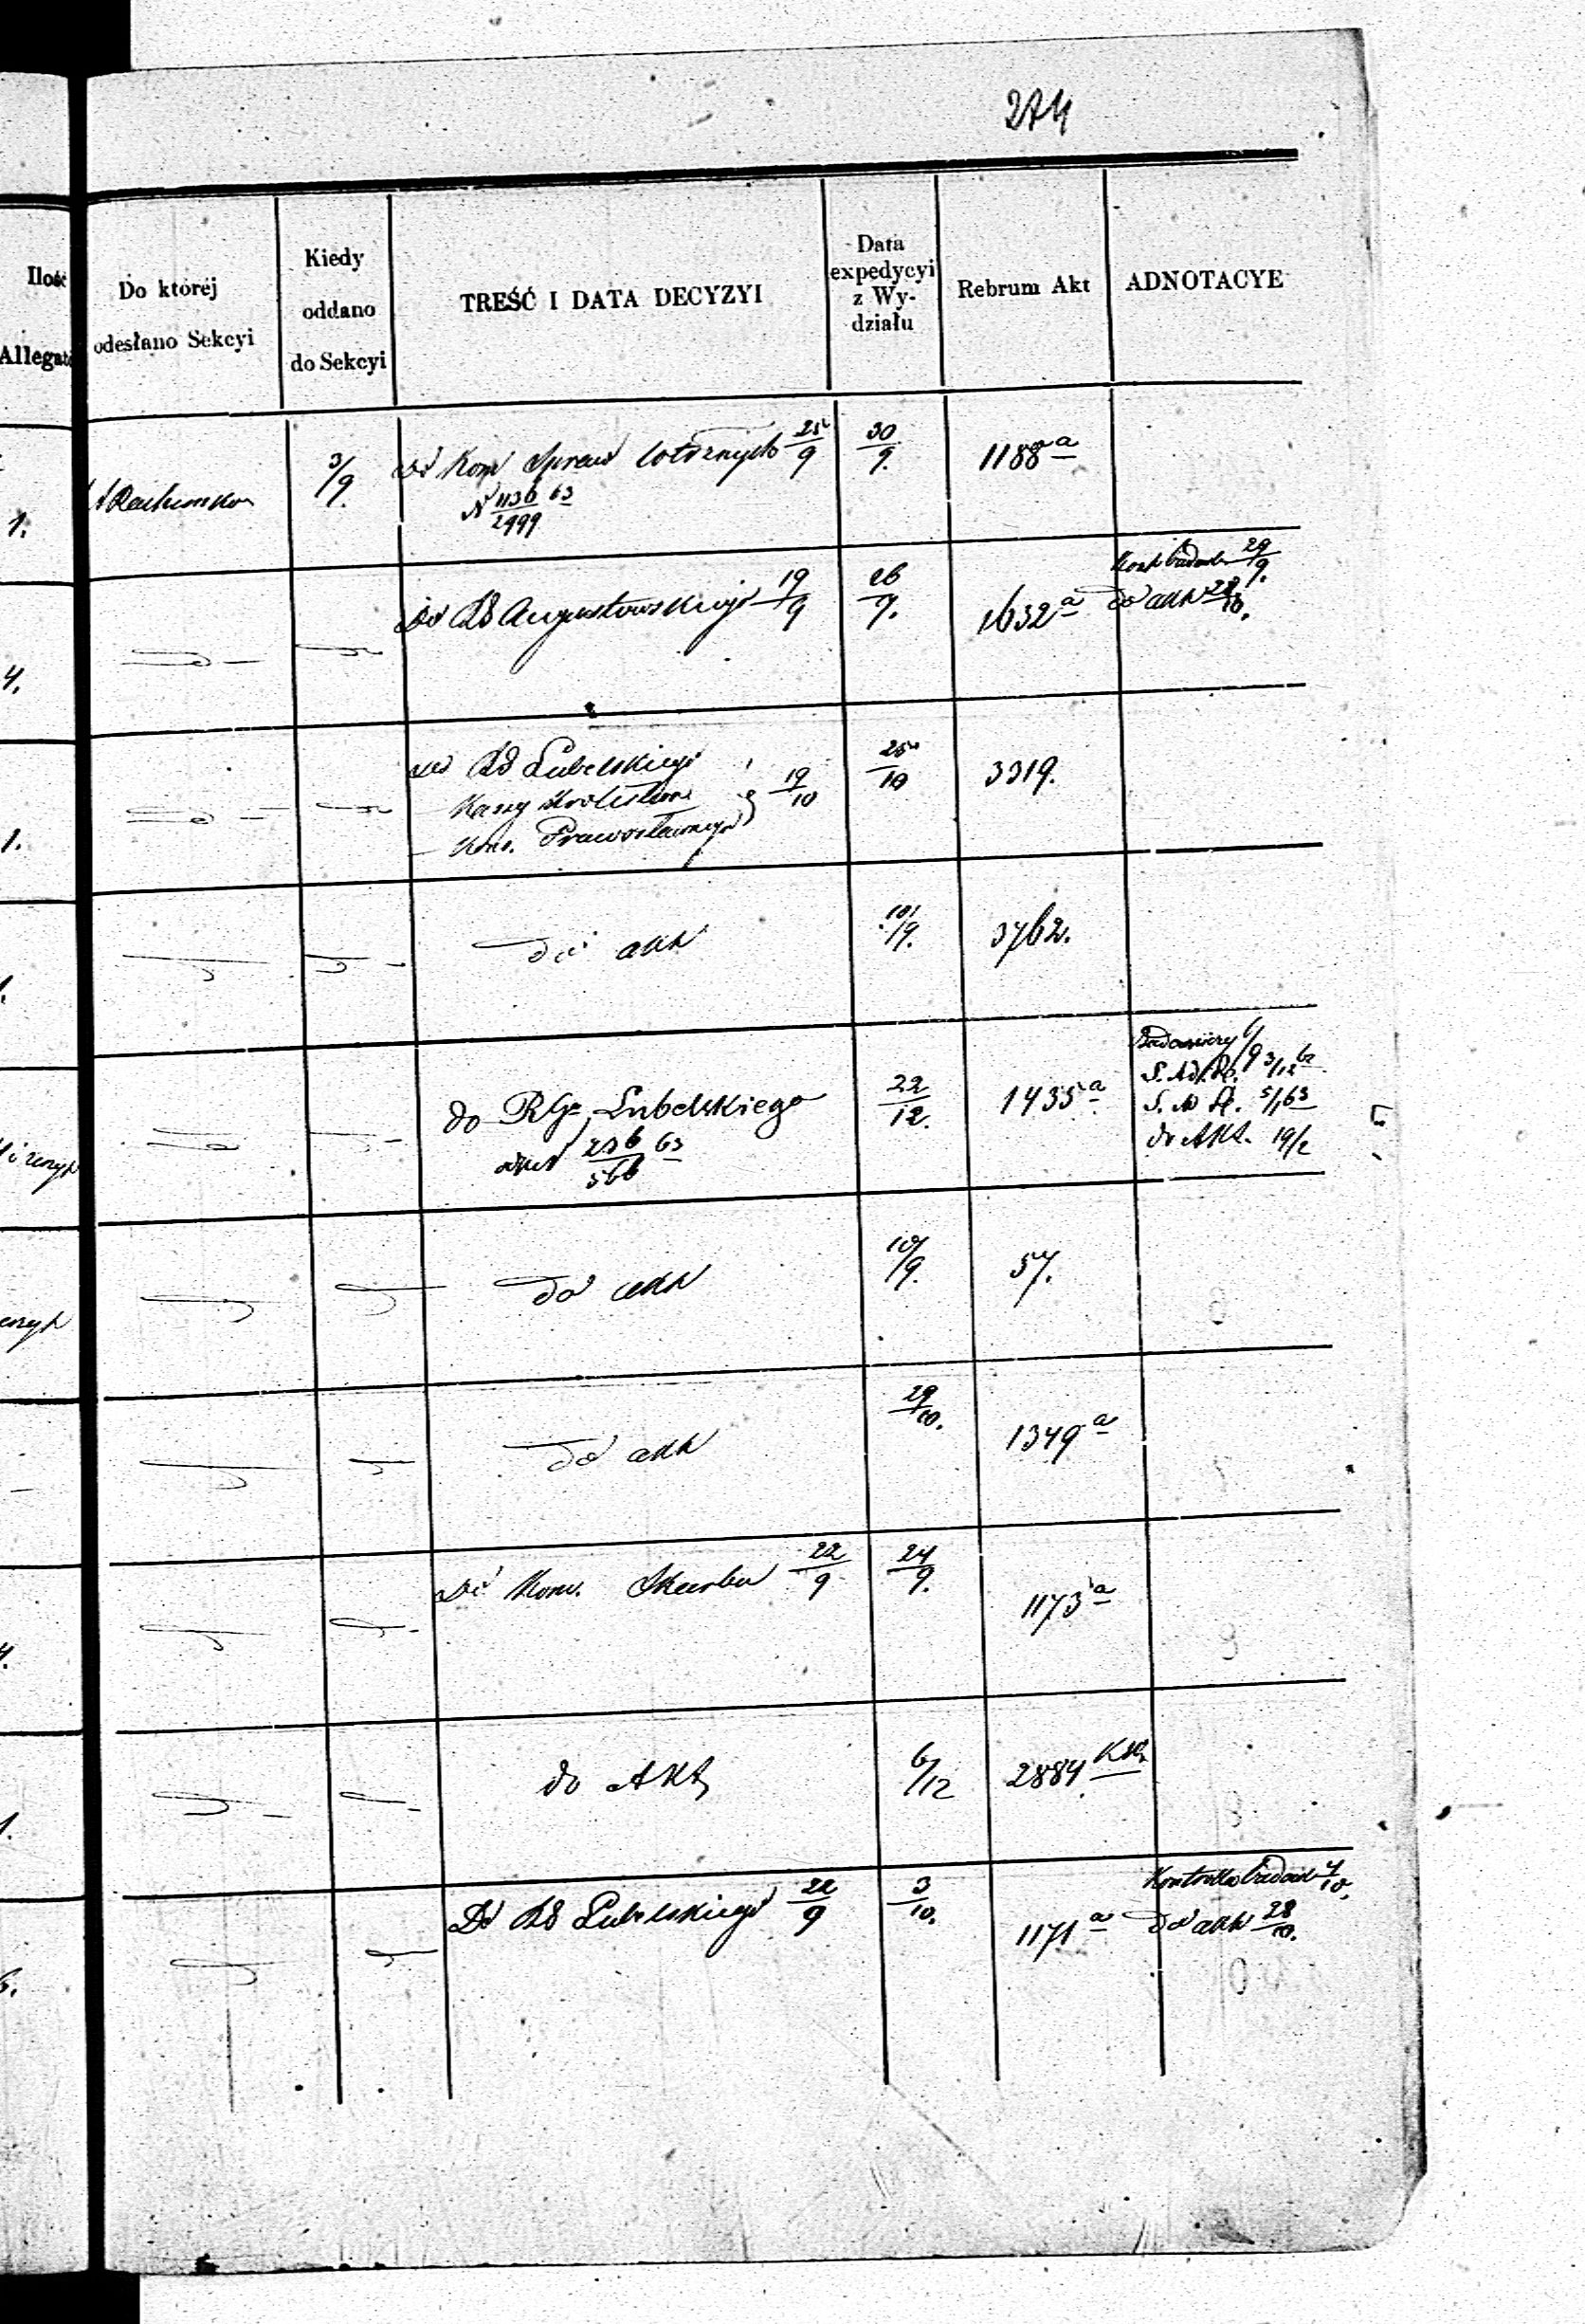 274
Ilość
Allegató
Do któréj
odesłano Sekcyi
Kiedy
oddano
do Sekcyi
TREŚĆ I DATA DECYZYI
Data
expedycyi
z Wy-
działu
Rebrum Akt
ADNOTACYE
1.
3/9.
Do Kom Spraw 25/9
N 1136/2999 63
30/9.
1188 a
4.
Do RG Augustowskiego 19/9
26/9.
1632 a
29/9.
do akt 28/10.
1.
do RG Lubelskiego
Kassy
Prawosławnego 19/10
25/10
3319.
do akt
10/9.
3762.
do RGo Lubelskiego
236/566 63
22/12.
1435 a
6/9
3/12 62
5/1 63
do Akt. 19/2
do akt
10/9.
57.
do akt
29/10.
1349 a
4.
Do Kom. Skarbu 22/9
24/9.
1173 a
1.
do Akt
6/12
2884
6.
Do RG Lubelskiego 22/9
3/10.
1171 a
Kontrolla 4/10.
do akt 28/10.